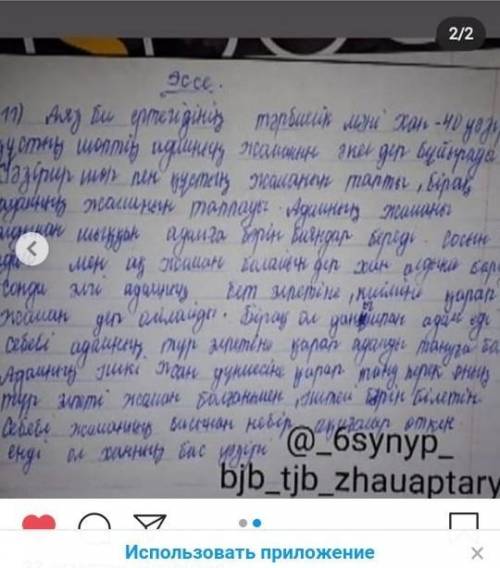 2/2
Эссе.
11) Аяз би ертегідінің тәрбиелік мәні хан - 40 уәзі
құстың шөптің адамның жаманын әкел деп бұйырады
Уәзірлер шөп пен құстың жаманын тапты, бірақ
адамның жаманын таппады. Адамның жаманы
шыққан адамға бәрін баяндап береді. Сосын
мен ақ жаман болайын деп хан алдына бар
Сонда әлгі адамның бет әлпетіне, киіміне қарап
жаман деп ойлайды. Бірақ ол адам еді
себебі адамның түр әлпетіне қарап адамды тануға бо
Адамның ішкі жан дүниесіне қарап тану керек оның
түр әлпеті жаман болғанымен, іштей бәрін білетін
себебі жаманның басынан небір оқиғалар өткен
енді ол ханның бас уәзірі
@_6synyp_
bjb_tjb_zhauaptary
Использовать приложение